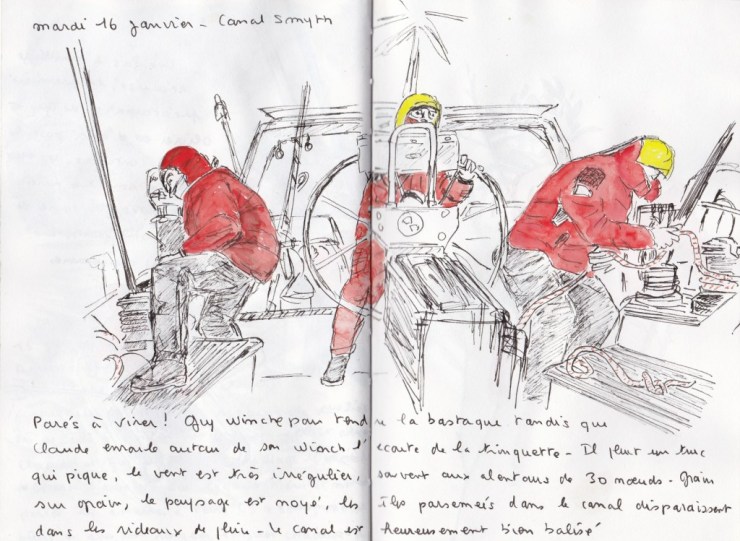 mardi 16 janvier - Canal Smyth
Parés à virer ! Guy winche pour tendre la bastaque tandis que
Claude enroule autour de son winch l'écoute de la trinquette - Il pleut un truc
qui pique, le vent est très irrégulier, souvent aux alentours de 30 nœuds - Grain
sur grain, le paysage est noyé, les îles parsemées dans le canal disparaissent
dans les rideaux de pluie - le canal est heureusement bien balisé